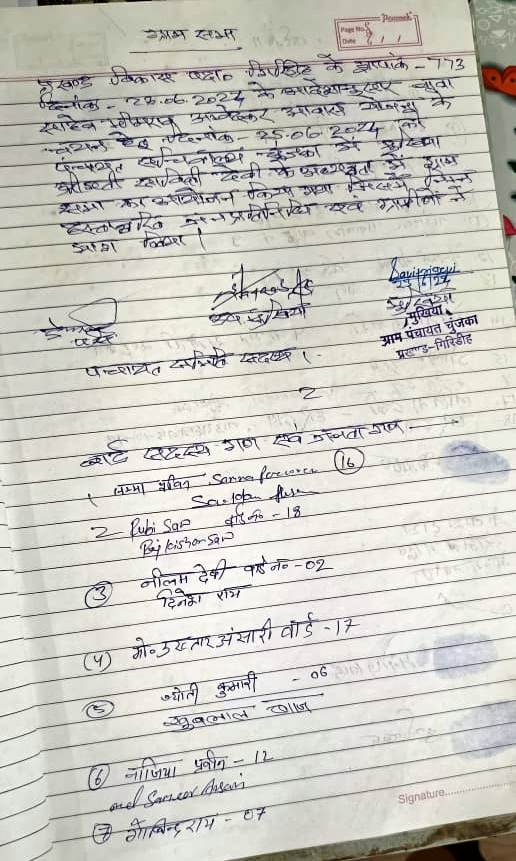 ग्राम सभा
Page No.
Date
प्रखण्ड विकास पदा० गिरिडीह के ज्ञापांक - 773
दिनांक - 22.06.2024 के आदेशानुसार
साहेब भीमराव अम्बेडकर आवास योजना के
चयन हेतु दिनांक - 25.06.2024 को
पंचायत सचिवालय में मुखिया
देवी के अध्यक्षता में ग्राम
सभा का आयोजन किया गया जिसमें निम्न
हस्ताक्षरित जनप्रतिनिधि एवं ग्रामीणों ने
भाग लिया।
उप मुखिया
मुखिया
ग्राम पंचायत चुंजका
प्रखण्ड-गिरिडीह
पंचायत समिति सदस्य।
2
वार्ड सदस्य गण एवं जनता गण -
1 प्रवीन (16)
2 Rubi Sao वार्ड नं० - 18
Bij kishor sao
(3) नीलम देवी वार्ड नं० - 02
दिनेश राय
(4) मो० अंसारी वार्ड - 17
(5) ज्योती कुमारी - 06
(6) नाजिया प्रवीन - 12
Ansari
(7) गोविन्द राय - 07
Signature